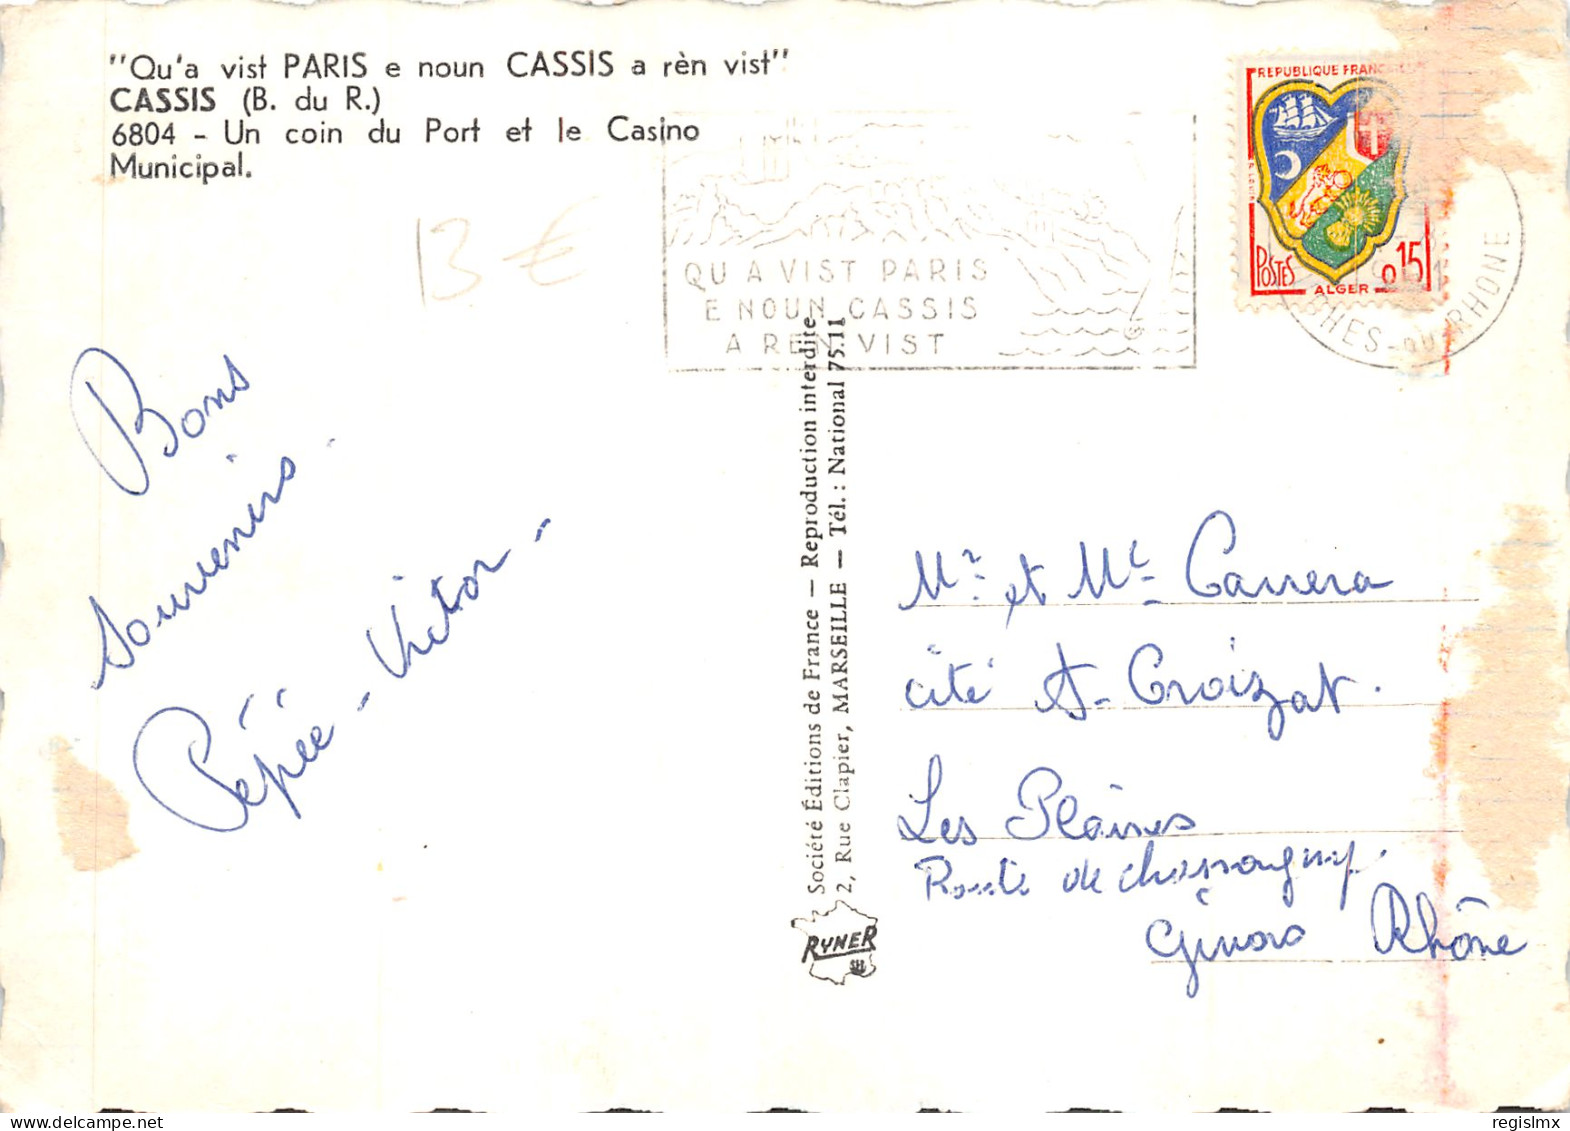 "Qu'a vist PARIS e noun CASSIS a rèn vist"
CASSIS (B. du R.)
6804 - Un coin du Port et le Casino
Municipal.
13 €
QU A VIST PARIS
E NOUN CASSIS
A REN VIST
REPUBLIQUE FRANCAISE
POSTES
ALGER
0,15
CHES-DU-RHONE
Bons
Souvenirs.
Pépée - Victor -
Société Éditions de France — Reproduction interdite
2, Rue Clapier, MARSEILLE — Tél. : National 75.11
RYNER
Mr et Me Carrera
cité A- Croizat.
Les Plaines
Route de chassagny.
Givors Rhône
regislmx